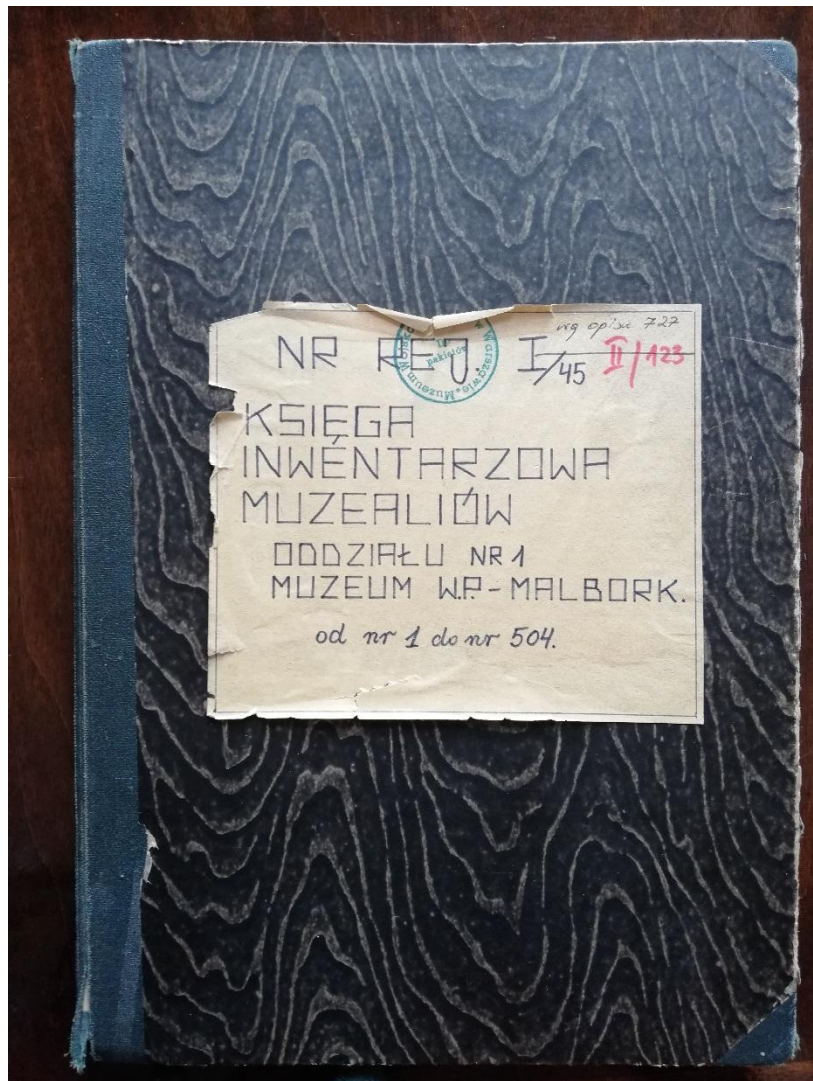 wg opisu 727
NR REJ. I/45 II/123
KSIĘGA
INWENTARZOWA
MUZEALIÓW
ODDZIAŁU NR 1
MUZEUM W.P.-MALBORK.
od nr 1 do nr 504.
w Warszawie * Muzeum Wojsk